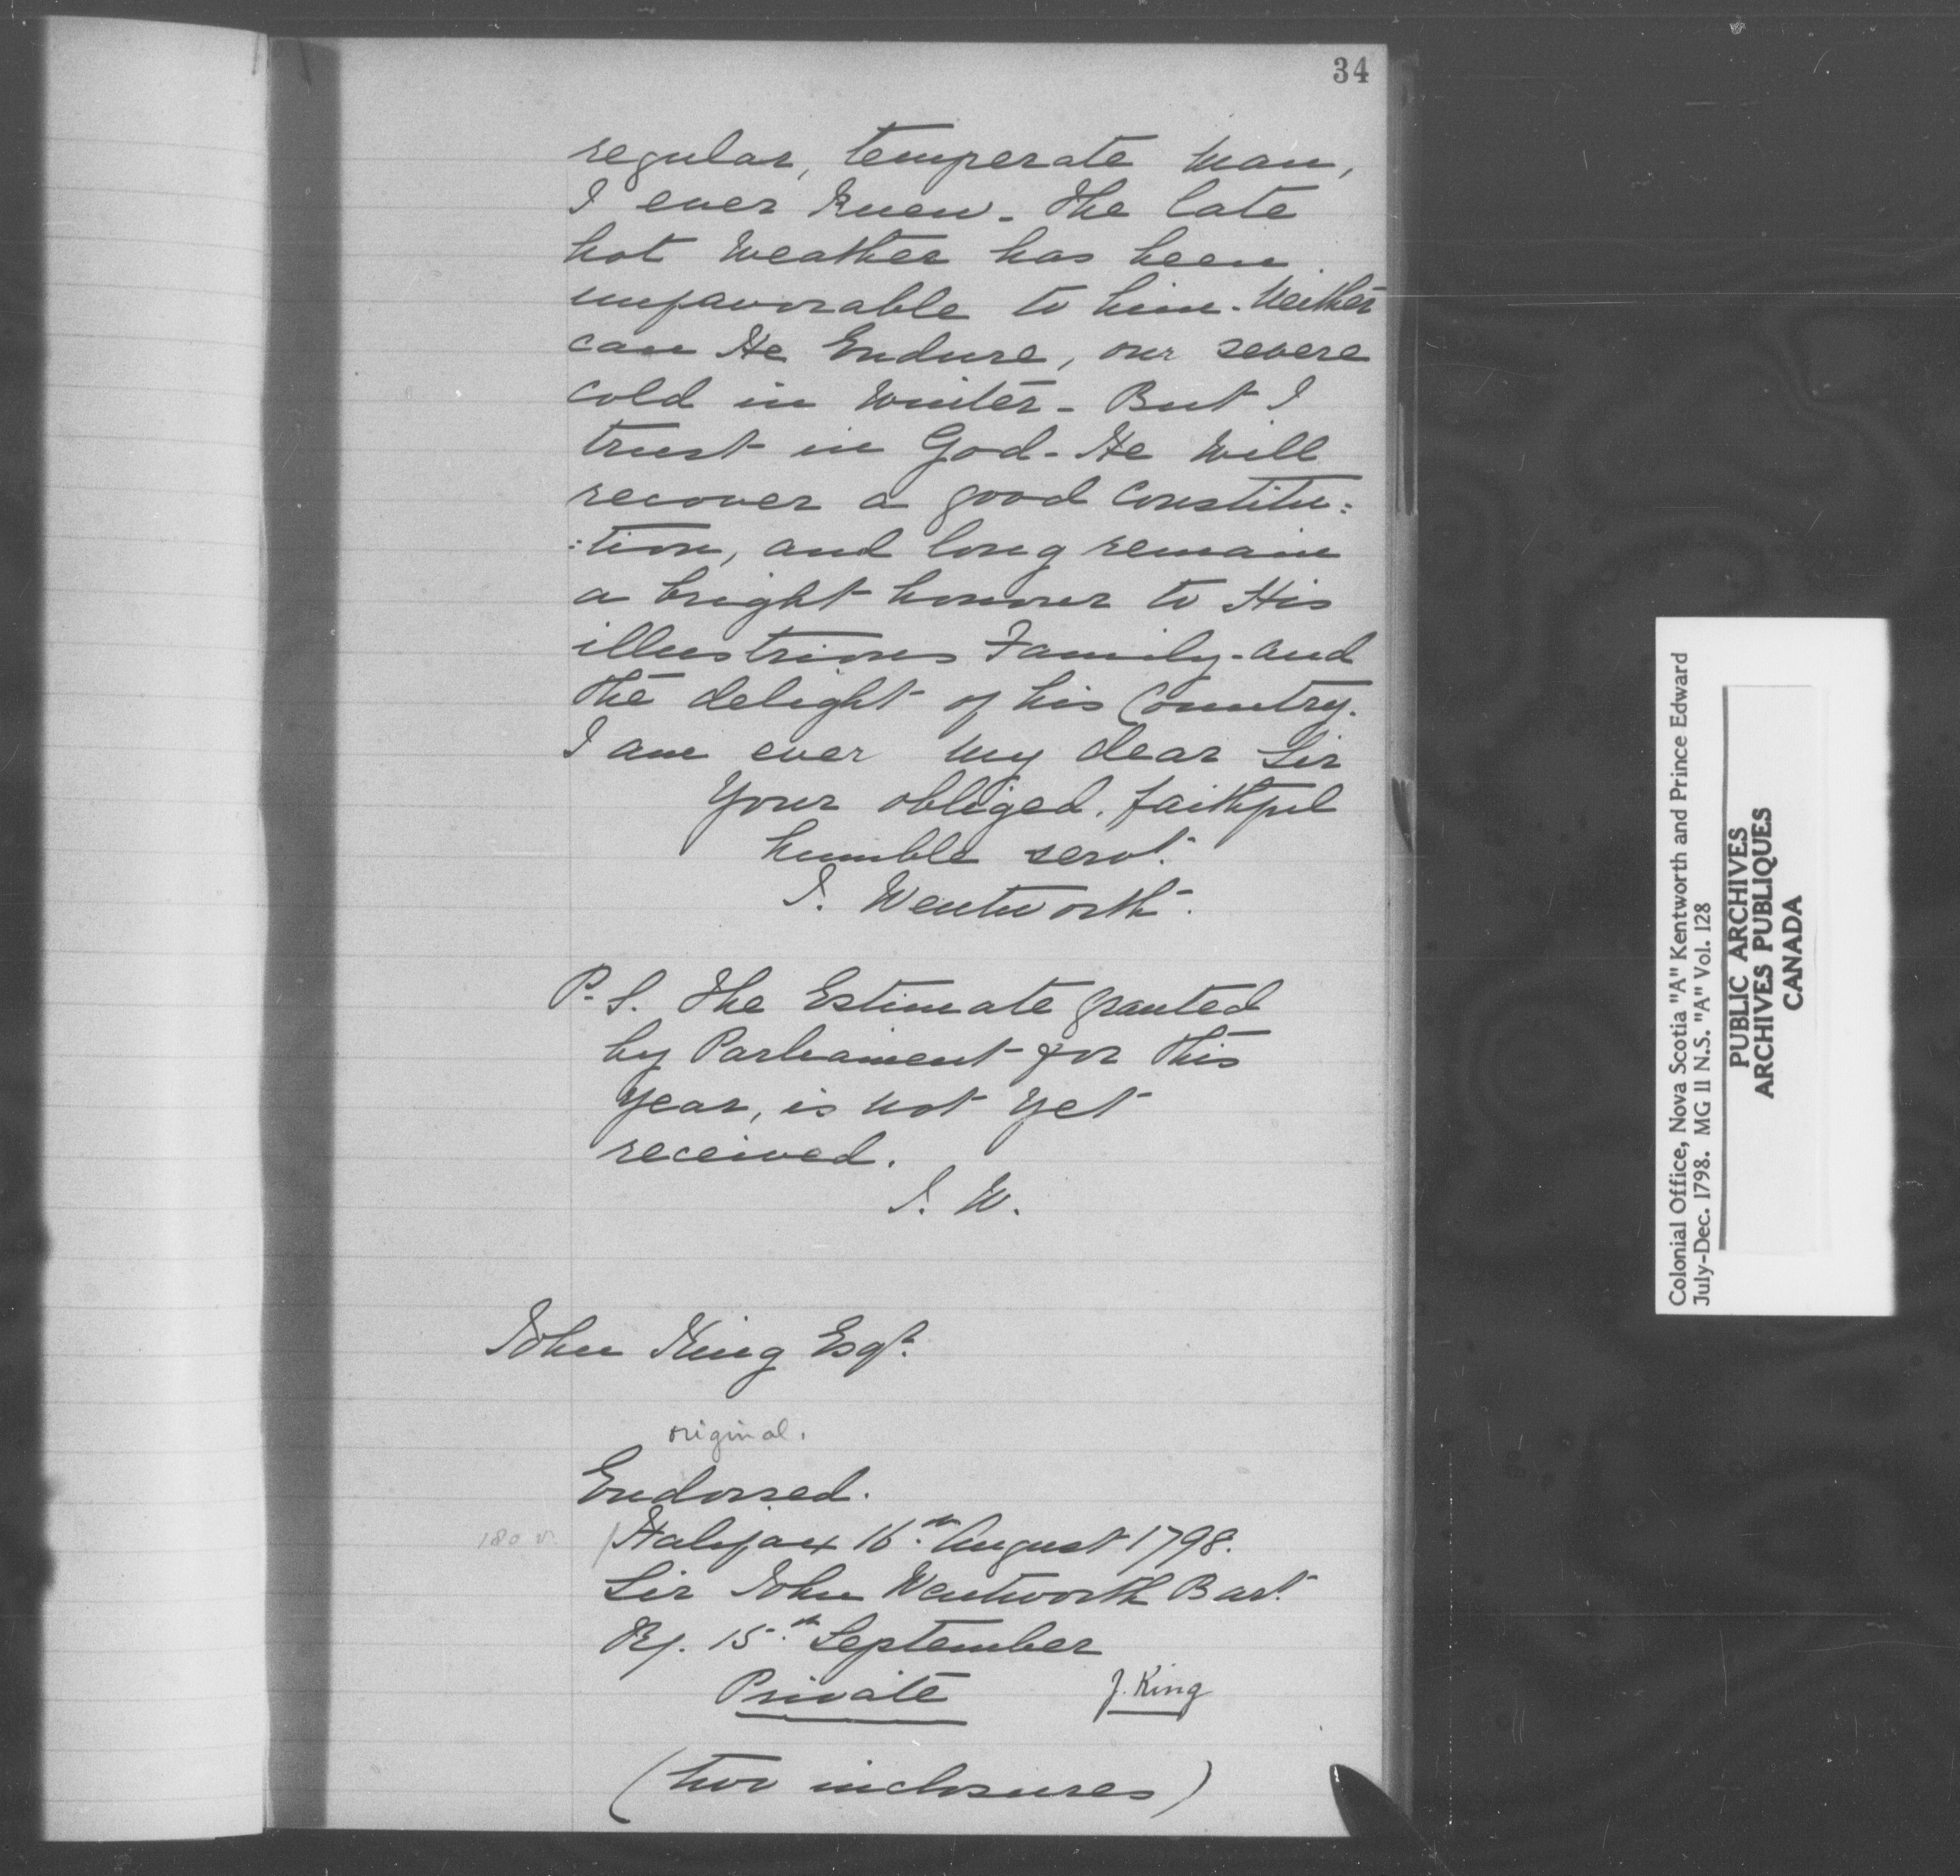 34
regular, temperate man,
I ever knew - The late
hot Weather has been
unfavorable to him - Neither
can He Endure, our severe
cold in Winter - But I
trust in God - He will
recover a good Constitu:
:tion, and long remain
a bright honour to His
illustrious Family - and
the delight of his Country.
I am ever my dear Sir
Your obliged, faithful
humble servt.
J. Wentworth.
P. S. The Estimate granted
by Parliament for this
Year, is not yet
received.
J. W.
John King Esqr.
original.
Endorsed.
180 v. / Halifax 16th August 1798.
Sir John Wentworth Bart.
15th September
Private J. King
(two inclosures)
Colonial Office, Nova Scotia "A" Kentworth and Prince Edward
July-Dec. 1798. MG 11 N.S. "A" Vol. 128
PUBLIC ARCHIVES
ARCHIVES PUBLIQUES
CANADA